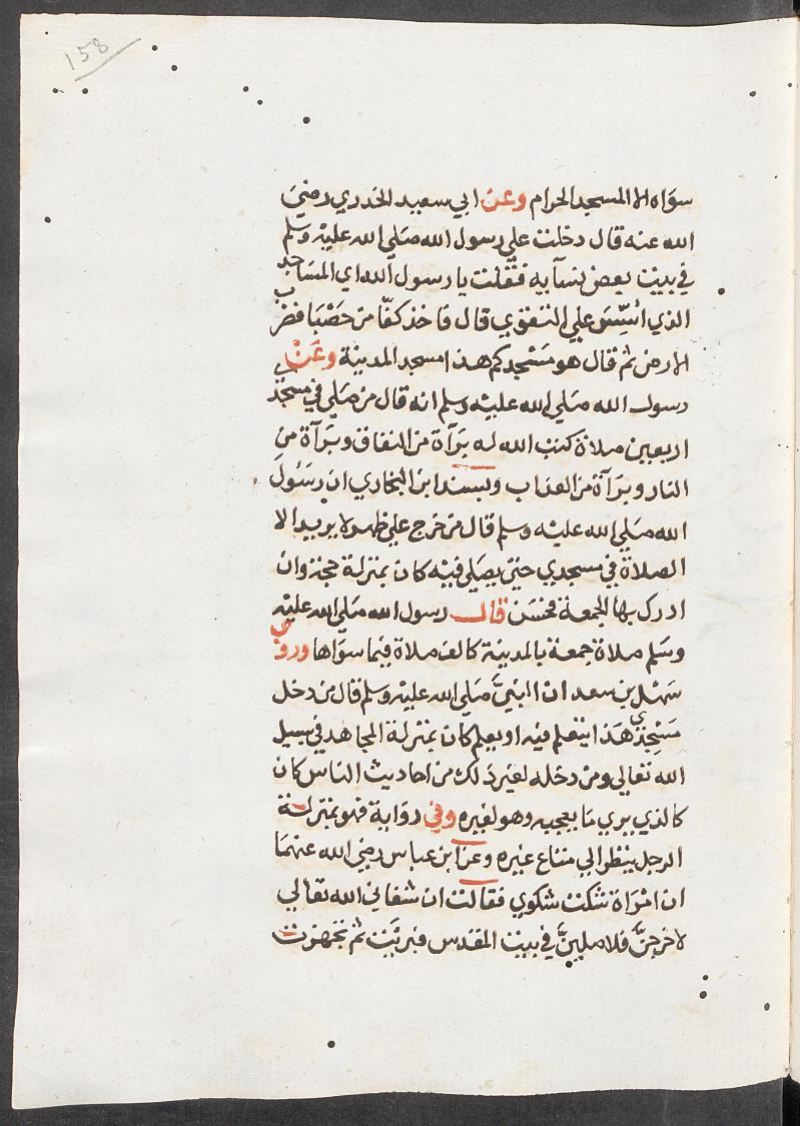 158
سوَاه الا المسجد الحرام وعن ابي سعيد الخدري رضيَ
الله عنه قال دخلت علي رسول الله صَلي الله عليه وسلم
في بيت بعض نسآيه فقلت يا رسول الله اي المسَاجد
الذي اسِّسَ علي التقوي قال فاخذ كفّا من حَصْبَا فضرب
الارض ثم قال هو مَسْجدكم هذا مسجد المدينة وعَنْ
رسول الله صَلي الله عليه وسلم انه قال من صَلي في مسجدي
اربعين صلاة كتب الله له برَآة من النفاق وبرَآة من
النار وبرَآة من العذاب وبسند ابن البخاري ان رسَولَ
الله صَلي الله عليه وسلم قال من خرج علي طهر لا يريد الا
الصلاة في مسجدي حتى يصَلي فيه كان بمنزلة حجة وان
ادرك بها الجمعة فحسَن قال رسول الله صَلي الله عليه
وسَلم صلاة جمعة بالمدينة كالف صلاة فيما سوَاها وروي
سَهْل بن سعد ان النبيَّ صَلي الله عليه وسلم قال من دخل
مَسْجدي هَذا يتعلم فيه او يعلم كان بمنزلة المجاهد في سبيل
الله تعالي ومن دخله لغير ذلك من احاديث الناس كان
كالذي يري مَا يعجبه وهو لغيره وفي روَاية فهو بمنزلة
الرجل ينظر الي متاع غيره وعن ابن عباس رضي الله عنهمَا
ان امْرَاة شكت شكوي فقالت ان شفاني الله تعالي
لاخرجنَّ فلاصلينَّ في بيت المقدس فبرئَت ثم تجهزت